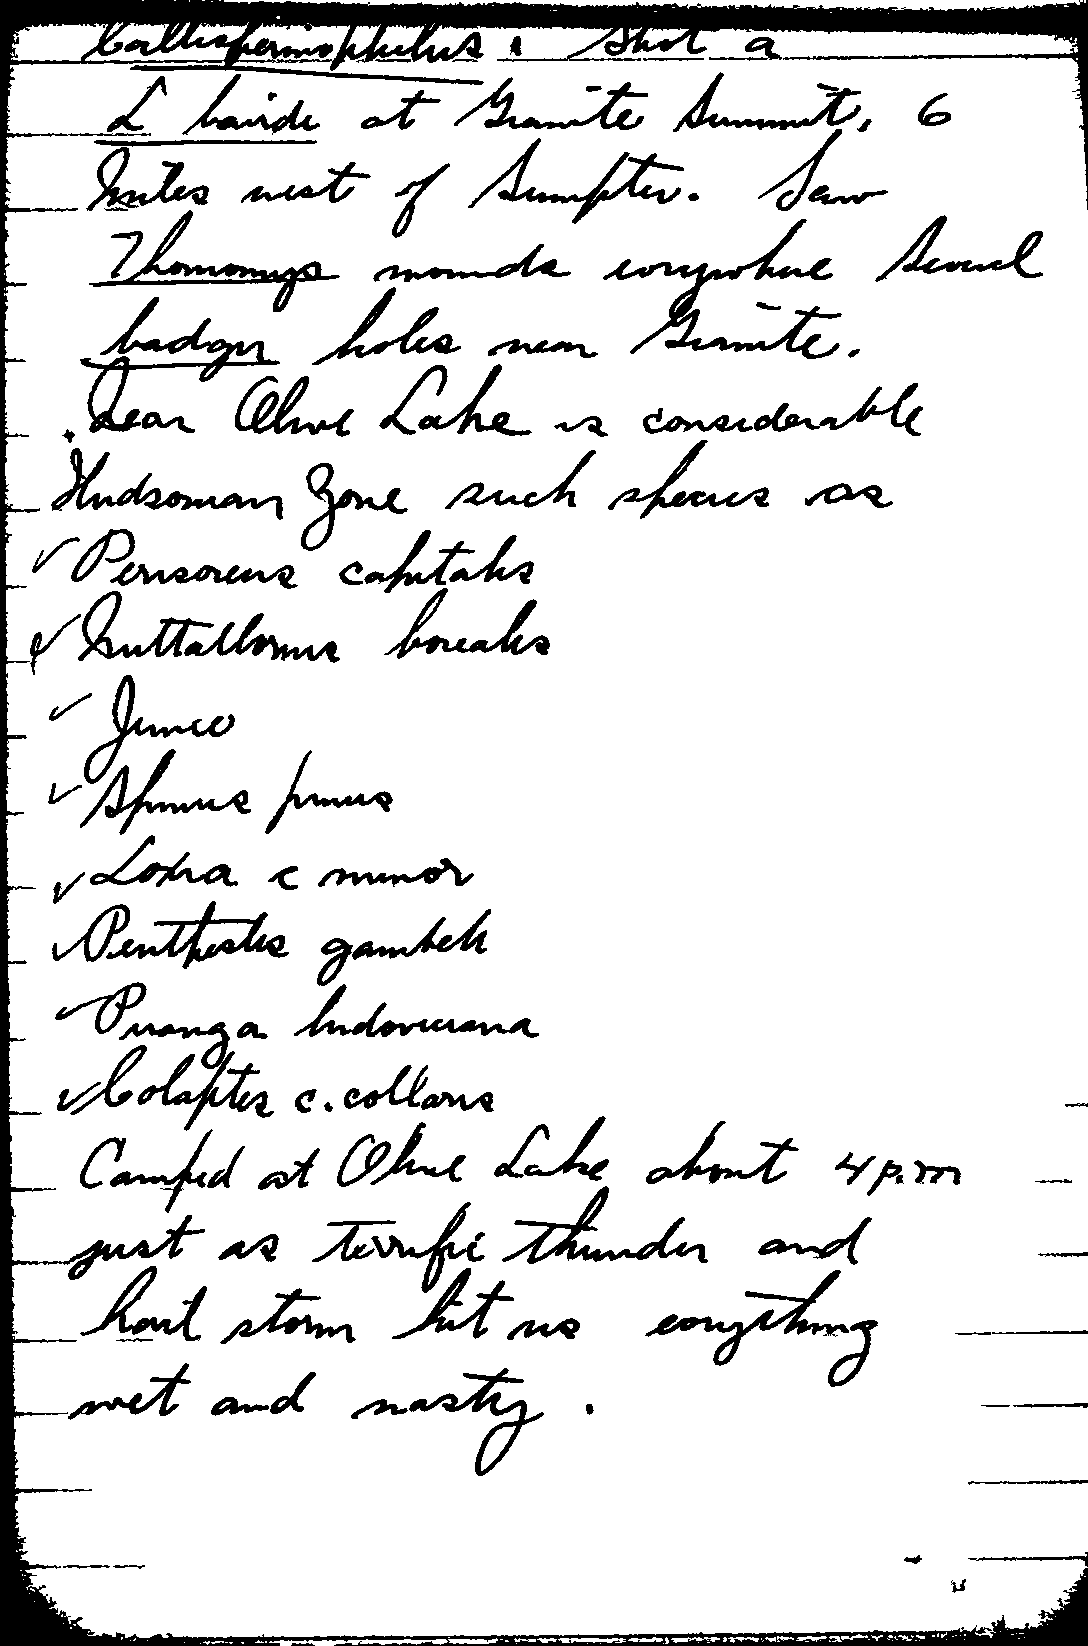 Callispermophilus. Shot a
L bairdi at Granite Summit, 6
Miles west of Sumpter. Saw
Thomomys mounds everywhere Several
badger holes near Granite.
Near Olive Lake is considerable
Hudsonian Zone such species as
✓ Perisoreus capitalis
✓ Nuttallornis borealis
✓ Junco
✓ Spinus pinus
✓ Loxia c minor
✓ Penthestes gambeli
✓ Piranga ludoviciana
✓ Colaptes c. collaris
Camped at Olive Lake about 4 p.m
just as terrific thunder and
hail storm hit us everything
wet and nasty.